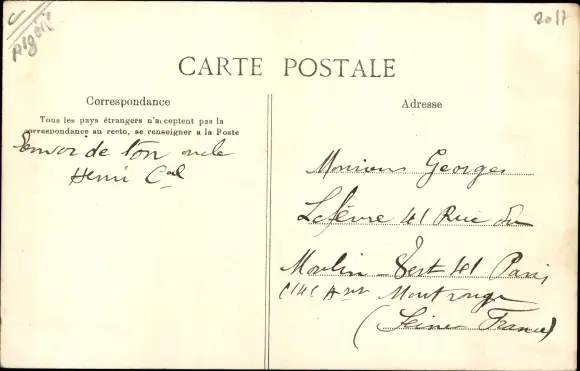 C
Algérie
2017
CARTE POSTALE
Correspondance
Tous les pays étrangers n'acceptent pas la
correspondance au recto, se renseigner a la Poste
Envoi de ton oncle
Henri Cal
Adresse
Monsieur Georges
Lefèvre 41 Rue du
Moulin Vert 41 Paris
(14e Arrt Montrouge
(Seine France)